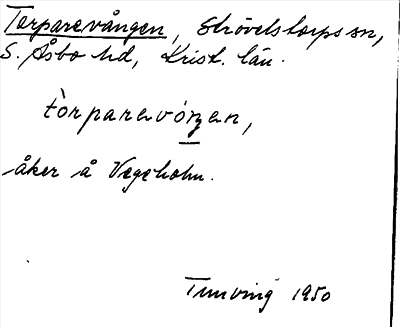 Torparevången, Strövelstorps sn,
S. Åsbo hd, Krist. län.
tòrparevóŋen,
åker å Vegeholm.
1950